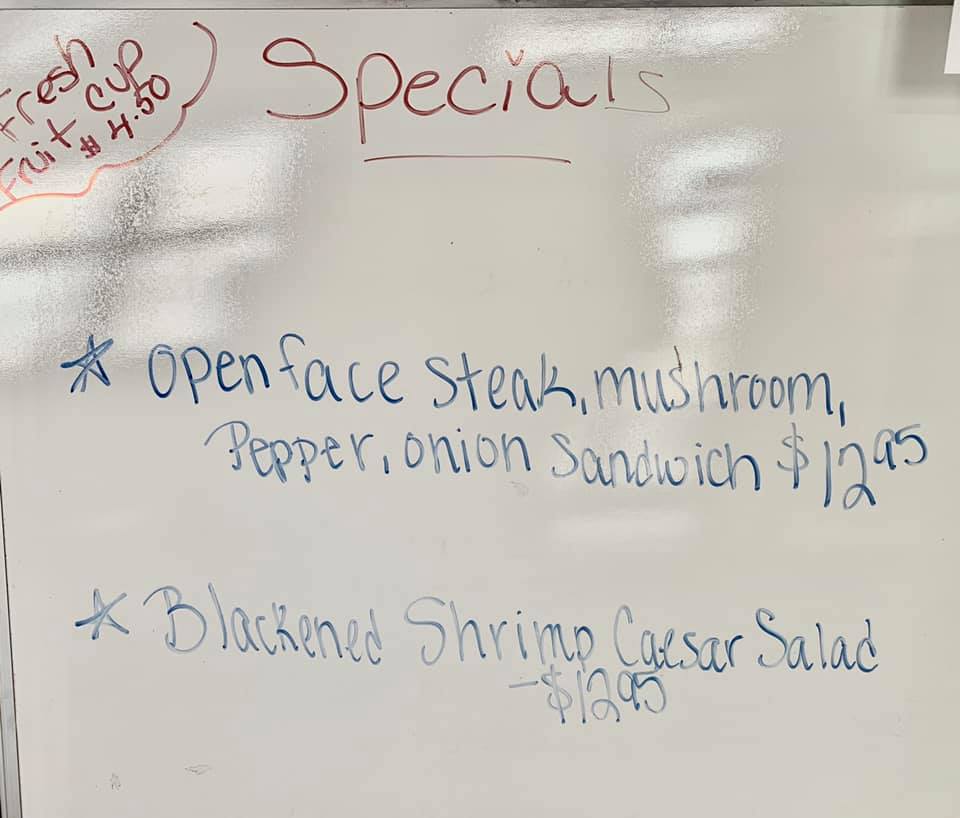 Fresh
Fruit cup
$4.50
Specials
☆ Open face steak, mushroom,
Pepper, onion Sandwich $12.95
☆ Blackened Shrimp Caesar Salad
-$12.95